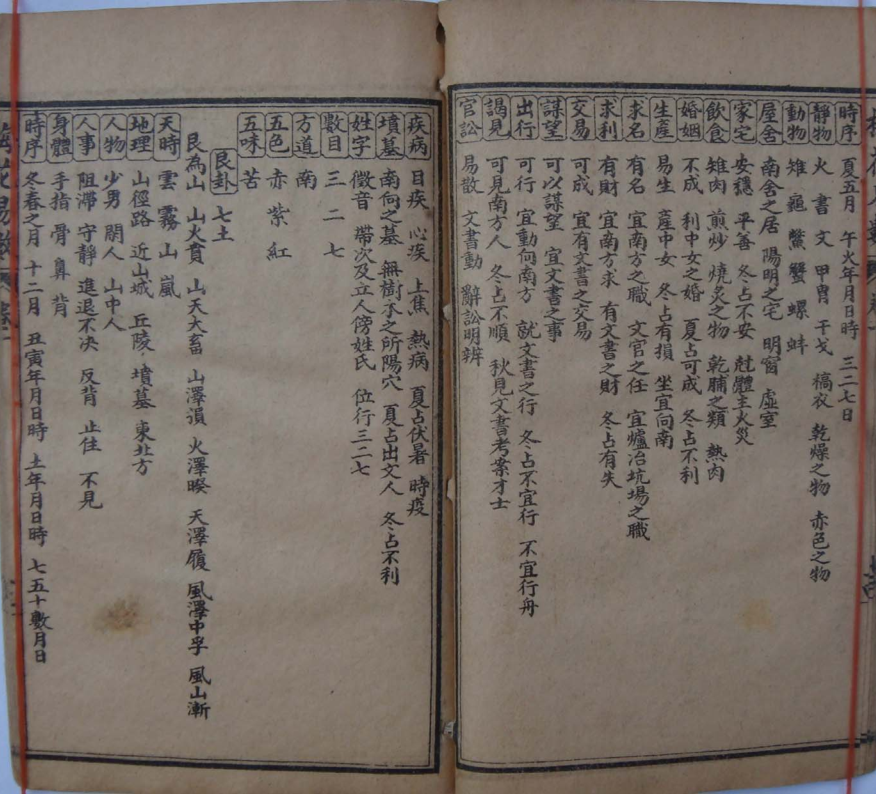 時序 夏五月 午火年月日時 三二七日
靜物 火 書 文 甲冑 干戈 槁衣 乾燥之物 赤色之物
動物 雉 龜 鱉 蟹 螺 蚌
屋舍 南舍之居 陽明之宅 明窗 虛室
家宅 安穩 平善 冬占不安 尅體主火災
飲食 雉肉 煎炒 燒炙之物 乾脯之類 熱肉
婚姻 不成 利中女之婚 夏占可成 冬占不利
生産 易生 産中女 冬占有損 坐宜向南
求名 有名 宜南方之職 文官之任 宜爐冶坑場之職
求利 有財 宜南方求 有文書之財 冬占有失
交易 可成 宜有文書之交易
謀望 可以謀望 宜文書之事
出行 可行 宜動向南方 就文書之行 冬占不宜行 不宜行舟
謁見 可見南方人 冬占不順 秋見文書考案才士
官訟 易散 文書動 辭訟明辨
疾病 目疾 心疾 上焦 熱病 夏占伏暑 時疫
墳墓 南向之墓 無樹木之所陽穴 夏占出文人 冬占不利
姓字 徵音 帶次及立人傍姓氏 位行三二七
數目 三 二 七
方道 南
五色 赤 紫 紅
五味 苦
艮卦 七土
艮為山 山火賁 山天大畜 山澤損 火澤睽 天澤履 風澤中孚 風山漸
天時 雲 霧 山 嵐
地理 山徑路 近山城 丘陵 墳墓 東北方
人物 少男 閒人 山中人
人事 阻滯 守靜 進退不决 反背 止住 不見
身體 手指 骨 鼻 背
時序 冬春之月 十二月 丑寅年月日時 土年月日時 七五十數月日